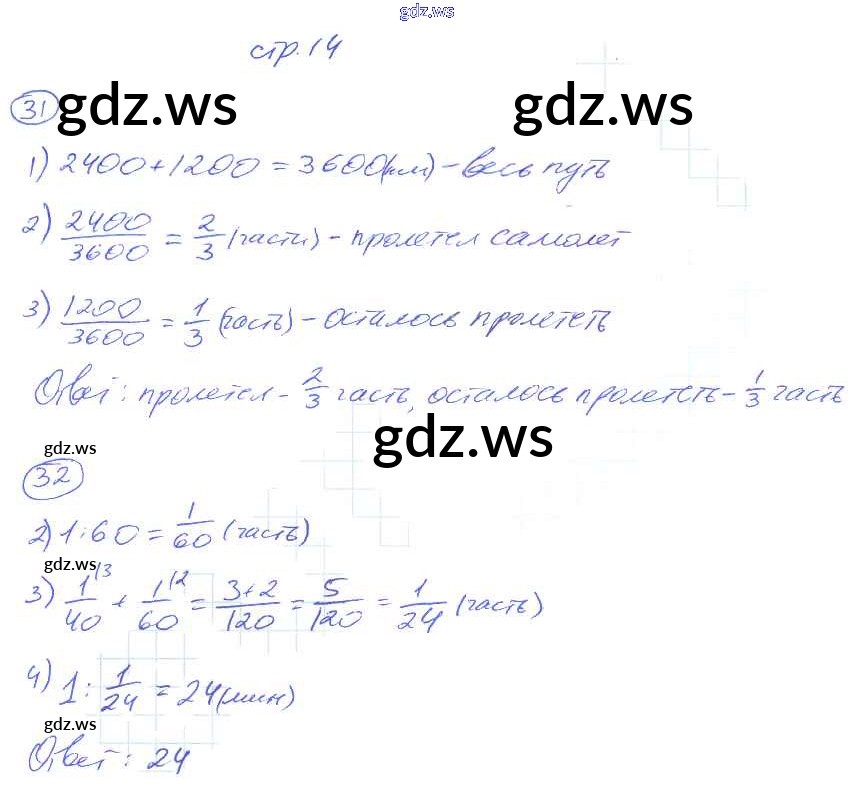 gdz.ws
стр. 14
31
gdz.ws gdz.ws
1) 2400+1200 = 3600(км) - весь путь
2) 2400/3600 = 2/3 (части) - пролетел самолет
3) 1200/3600 = 1/3 (часть) - осталось пролететь
Ответ: пролетел - 2/3 часть, осталось пролететь - 1/3 часть
gdz.ws
gdz.ws
32
2) 1:60 = 1/60 (часть)
gdz.ws
3) 1/40 \3 + 1/60 \2 = 3+2/120 = 5/120 = 1/24 (часть)
4) 1: 1/24 = 24(мин)
gdz.ws
Ответ: 24